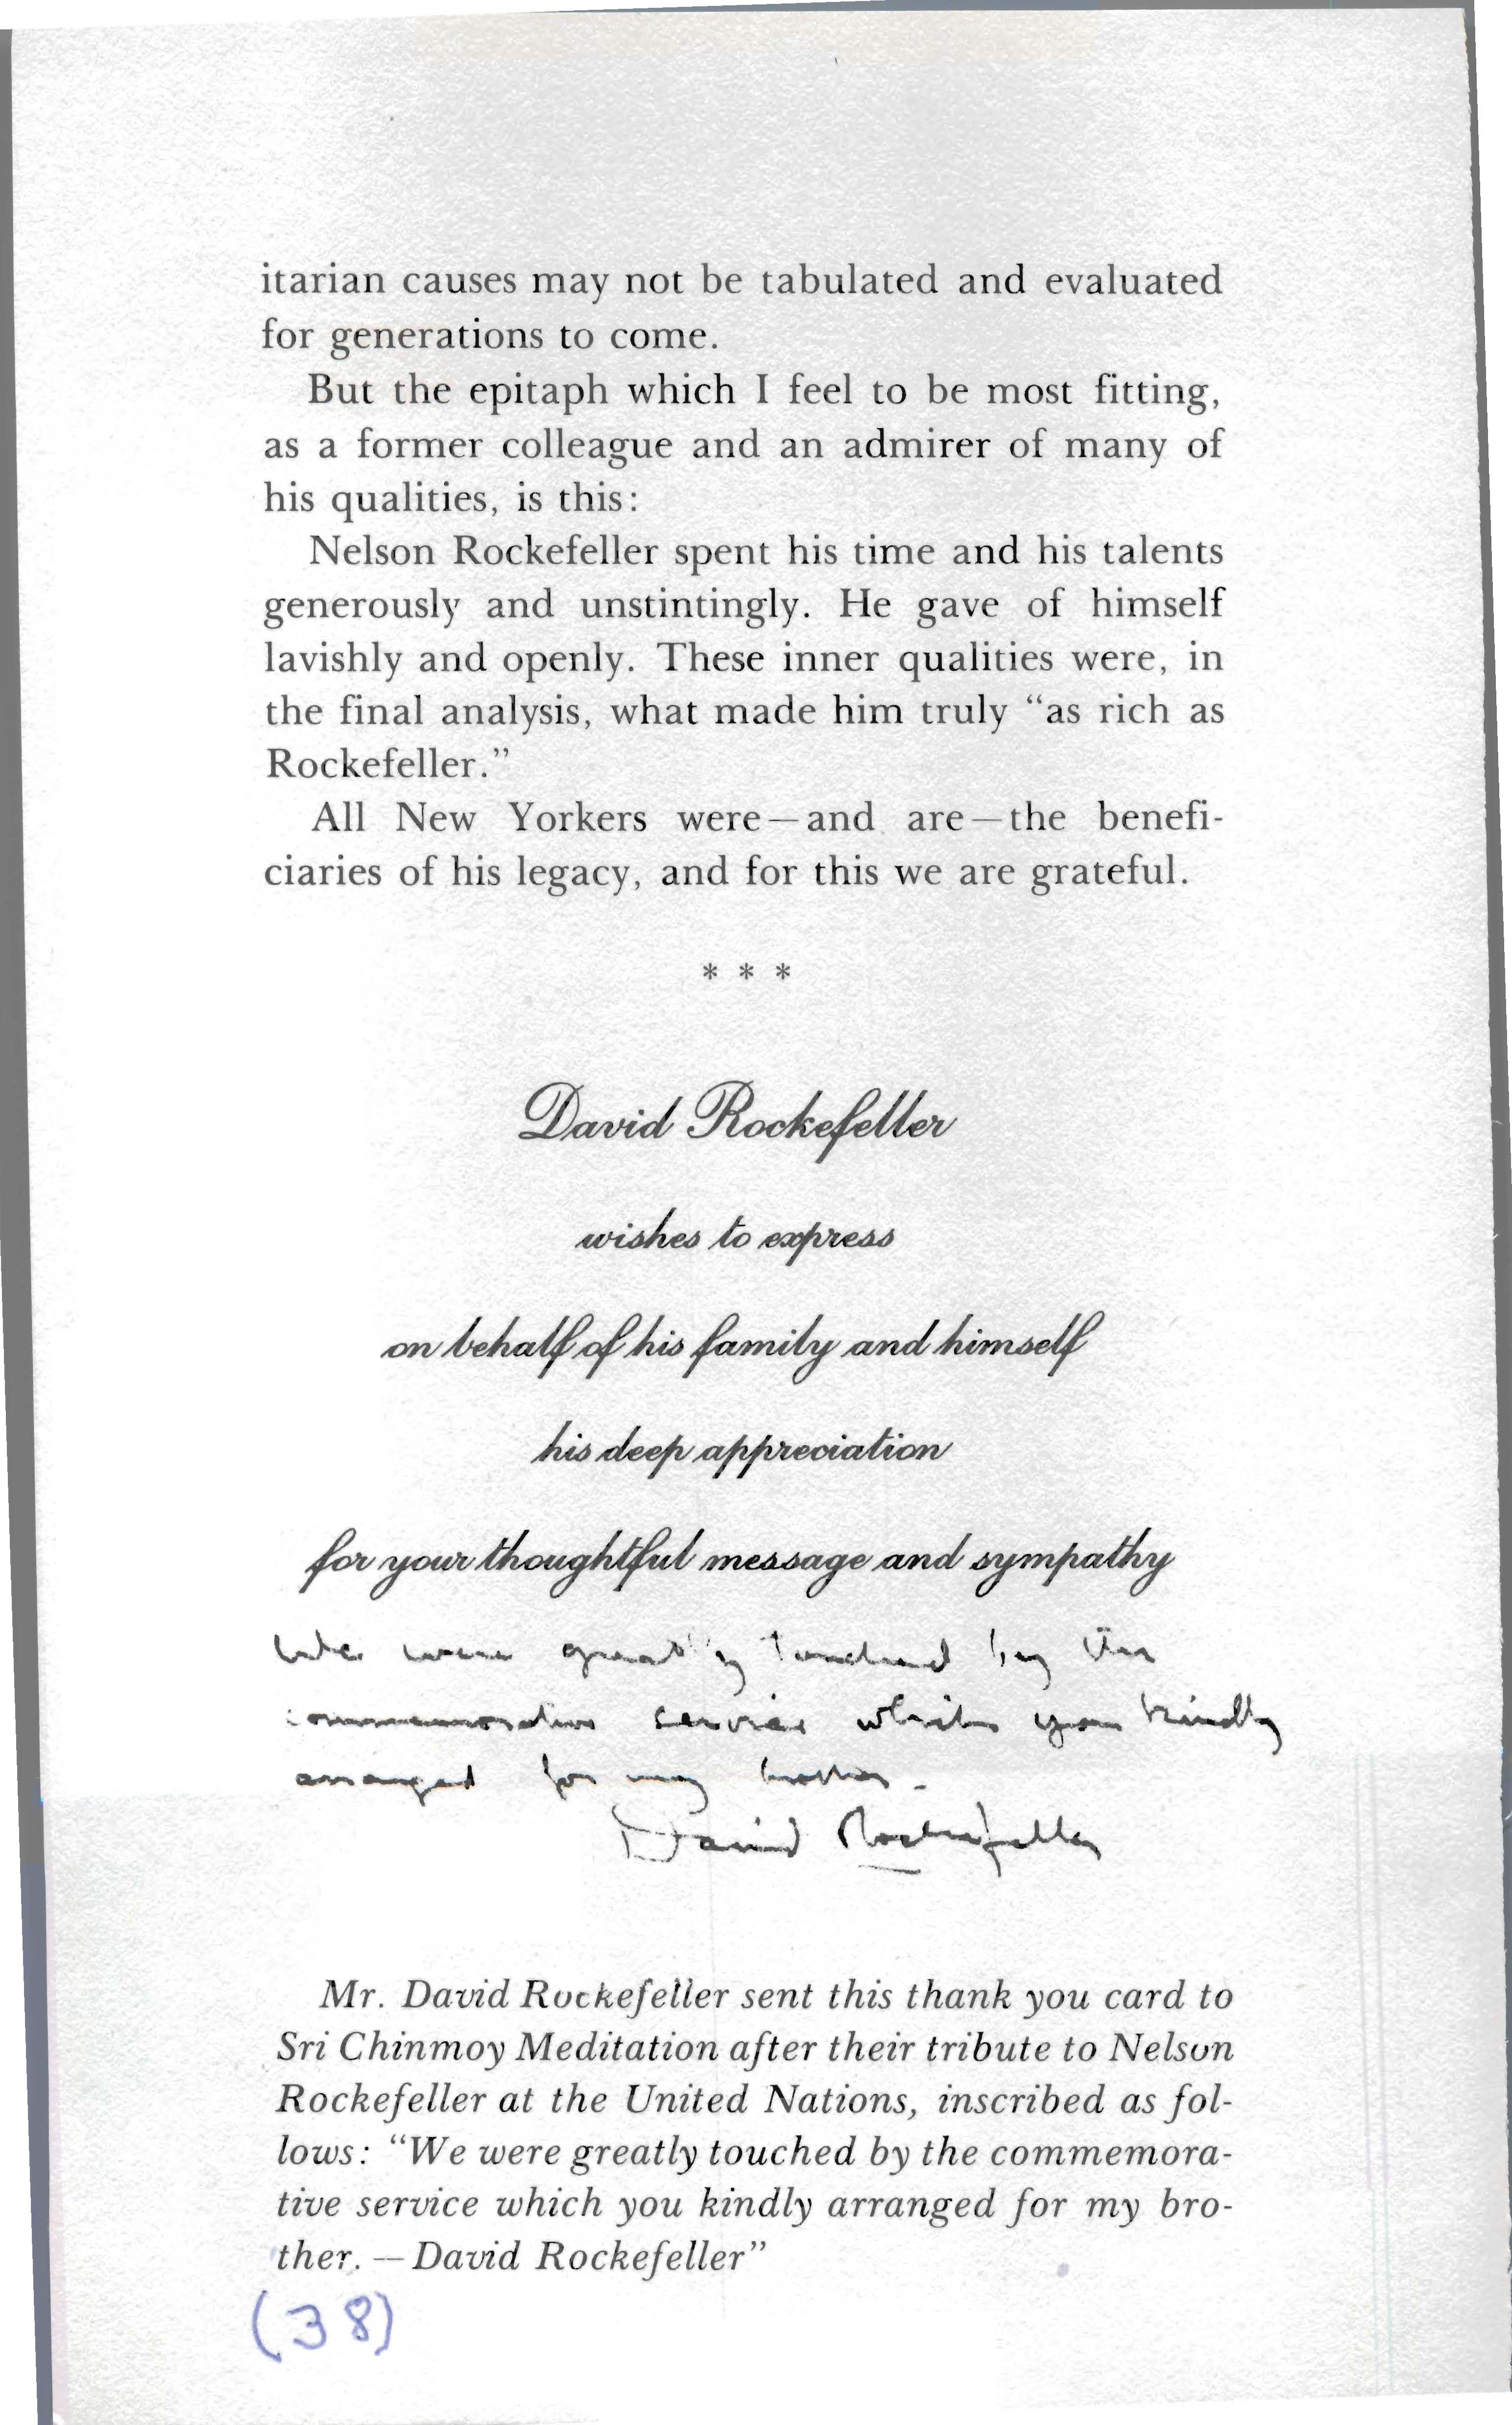 itarian causes may not be tabulated and evaluated
for generations to come.
But the epitaph which I feel to be most fitting,
as a former colleague and an admirer of many of
his qualities, is this:
Nelson Rockefeller spent his time and his talents
generously and unstintingly. He gave of himself
lavishly and openly. These inner qualities were, in
the final analysis, what made him truly “as rich as
Rockefeller.”
All New Yorkers were—and are—the benefi-
ciaries of his legacy, and for this we are grateful.
* * *
David Rockefeller
wishes to express
on behalf of his family and himself
his deep appreciation
for your thoughtful message and sympathy
We were greatly touched by the
commemorative service which you kindly
arranged for my brother.
David Rockefeller
Mr. David Rockefeller sent this thank you card to
Sri Chinmoy Meditation after their tribute to Nelson
Rockefeller at the United Nations, inscribed as fol-
lows: “We were greatly touched by the commemora-
tive service which you kindly arranged for my bro-
ther. — David Rockefeller”
(38)